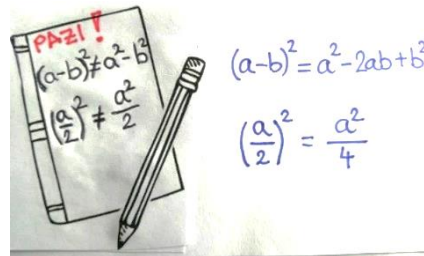 PAZI!
(a-b)²≠a²-b²
(a/2)²≠a²/2
(a-b)²=a²-2ab+b²
(a/2)²=a²/4